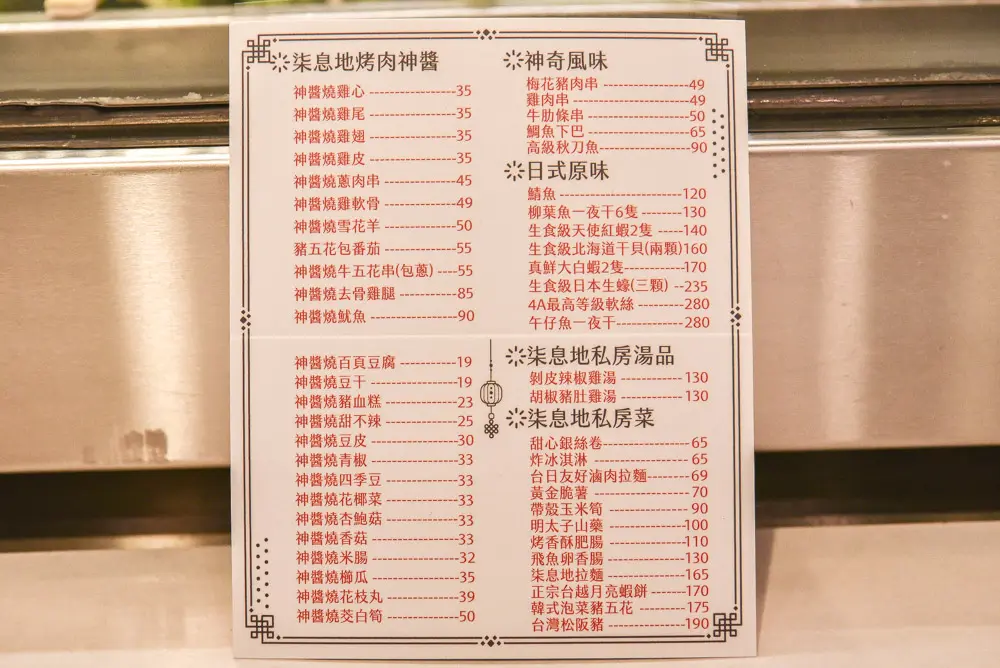 柒息地烤肉神醬
神醬燒雞心 ----------------35
神醬燒雞尾 ----------------35
神醬燒雞翅 ----------------35
神醬燒雞皮 ----------------35
神醬燒蔥肉串 -------------45
神醬燒雞軟骨 -------------49
神醬燒雪花羊 -------------50
豬五花包番茄 -------------55
神醬燒牛五花串(包蔥) ----55
神醬燒去骨雞腿 -----------85
神醬燒魷魚 ----------------90
神醬燒百頁豆腐 -----------19
神醬燒豆干 ----------------19
神醬燒豬血糕 -------------23
神醬燒甜不辣 -------------25
神醬燒豆皮 ----------------30
神醬燒青椒 ----------------33
神醬燒四季豆 -------------33
神醬燒花椰菜 -------------33
神醬燒杏鮑菇 -------------33
神醬燒香菇 ----------------33
神醬燒米腸 ----------------32
神醬燒櫛瓜 ----------------35
神醬燒花枝丸 -------------39
神醬燒茭白筍 -------------50
神奇風味
梅花豬肉串 ----------------49
雞肉串 ---------------------49
牛肋條串 ------------------50
鯛魚下巴 ------------------65
高級秋刀魚----------------90
日式原味
鯖魚 -----------------------120
柳葉魚一夜干6隻 --------130
生食級天使紅蝦2隻 -----140
生食級北海道干貝(兩顆)160
真鮮大白蝦2隻-----------170
生食級日本生蠔(三顆) --235
4A最高等級軟絲 ---------280
午仔魚一夜干-------------280
柒息地私房湯品
剝皮辣椒雞湯 ----------- 130
胡椒豬肚雞湯 ----------- 130
柒息地私房菜
甜心銀絲卷----------------65
炸冰淇淋 ------------------ 65
台日友好滷肉拉麵--------69
黃金脆薯 ------------------ 70
帶殼玉米筍 --------------- 90
明太子山藥 ---------------100
烤香酥肥腸 ---------------110
飛魚卵香腸 ---------------130
柒息地拉麵----------------165
正宗台越月亮蝦餅 -------170
韓式泡菜豬五花 --------- 175
台灣松阪豬 ---------------190